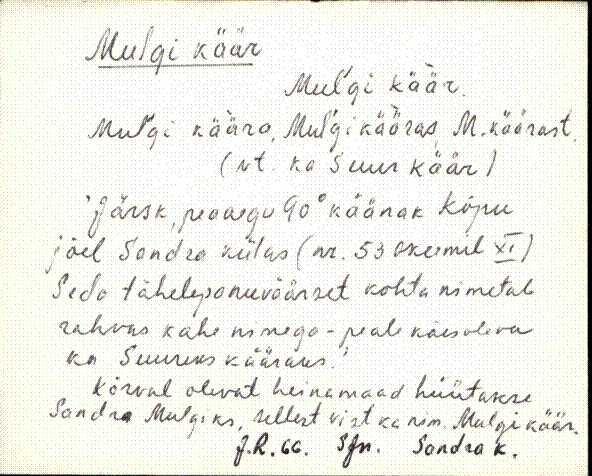 Mulgi käär
Mul'gi kä̀är.
Mul'gi kä̀ära, Mul'gi kä̀äras, M. käärast.
(vt. ka Suur käär)
"Järsk, peaaegu 90° käänak Kõpu
jõel Sandra külas (nr. 53 skeemil XI)
Seda tähelepanuväärset kohta nimetab
rahvas kahe nimega - peale käesoleva
ka Suureks kääraks."
Kõrval olevat heinamaad hüütakse
Sandra Mulgiks, sellest vist ka nim. Mulgi käär.
J.R. 66. SJn. Sandra k.